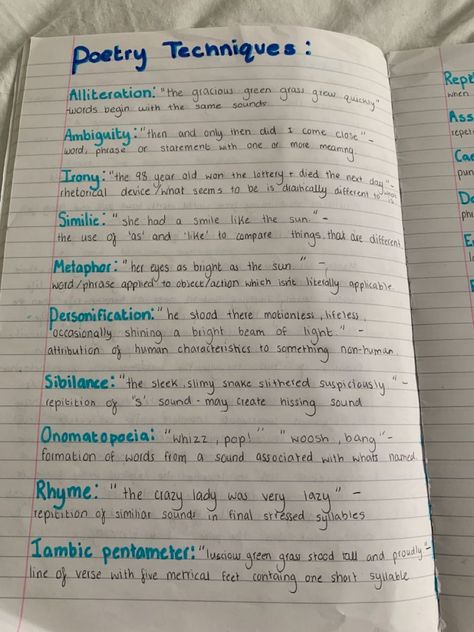 Poetry Techniques:
Alliteration: "the gracious green grass grew quickly"
-words begin with the same sounds
Ambiguity: "then and only then did I come close" -
word, phrase or statement with one or more meaning
Irony: "the 98 year old won the lottery + died the next day" -
rhetorical device/what seems to be is drastically different to
Similie: "she had a smile like the sun." -
the use of 'as' and 'like' to compare things that are different
Metaphor: "her eyes as bright as the sun." -
word/phrase applied to object/action which isnt literally applicable.
Personification: "he stood there motionless, lifeless,
occasionally shining a bright beam of light." -
attribution of human characteristics to something non-human.
Sibilance: "the sleek, slimy snake slithered suspiciously" -
repitition of 's' sound - may create hissing sound
Onomatopoeia: "whizz, pop!" "woosh, bang" -
formation of words from a sound associated with whats named
Rhyme: "the crazy lady was very lazy" -
repitition of similiar sounds in final stressed syllables
Iambic pentameter: "luscious green grass stood tall and proudly" -
line of verse with five metrical feet containg one short syllable
Rept
when
Ass
repet
Cae
pun
phr